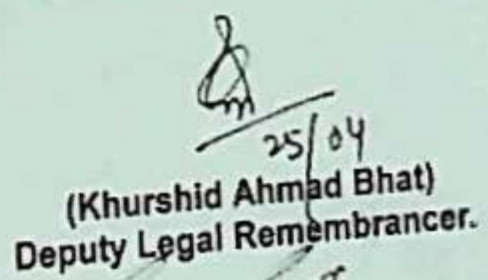 25/04
(Khurshid Ahmad Bhat)
Deputy Legal Remembrancer.